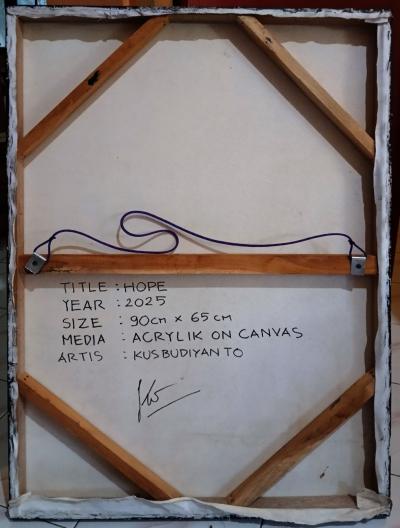 TITLE : HOPE
YEAR : 2025
SIZE : 90cm x 65cm
MEDIA : ACRYLIK ON CANVAS
ARTIS : KUSBUDIYANTO